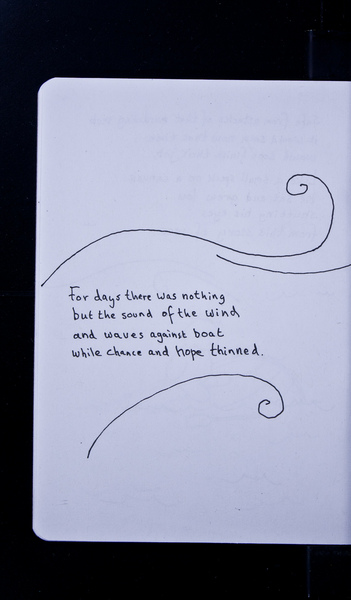 For days there was nothing
but the sound of the wind
and waves against boat
while chance and hope thinned.